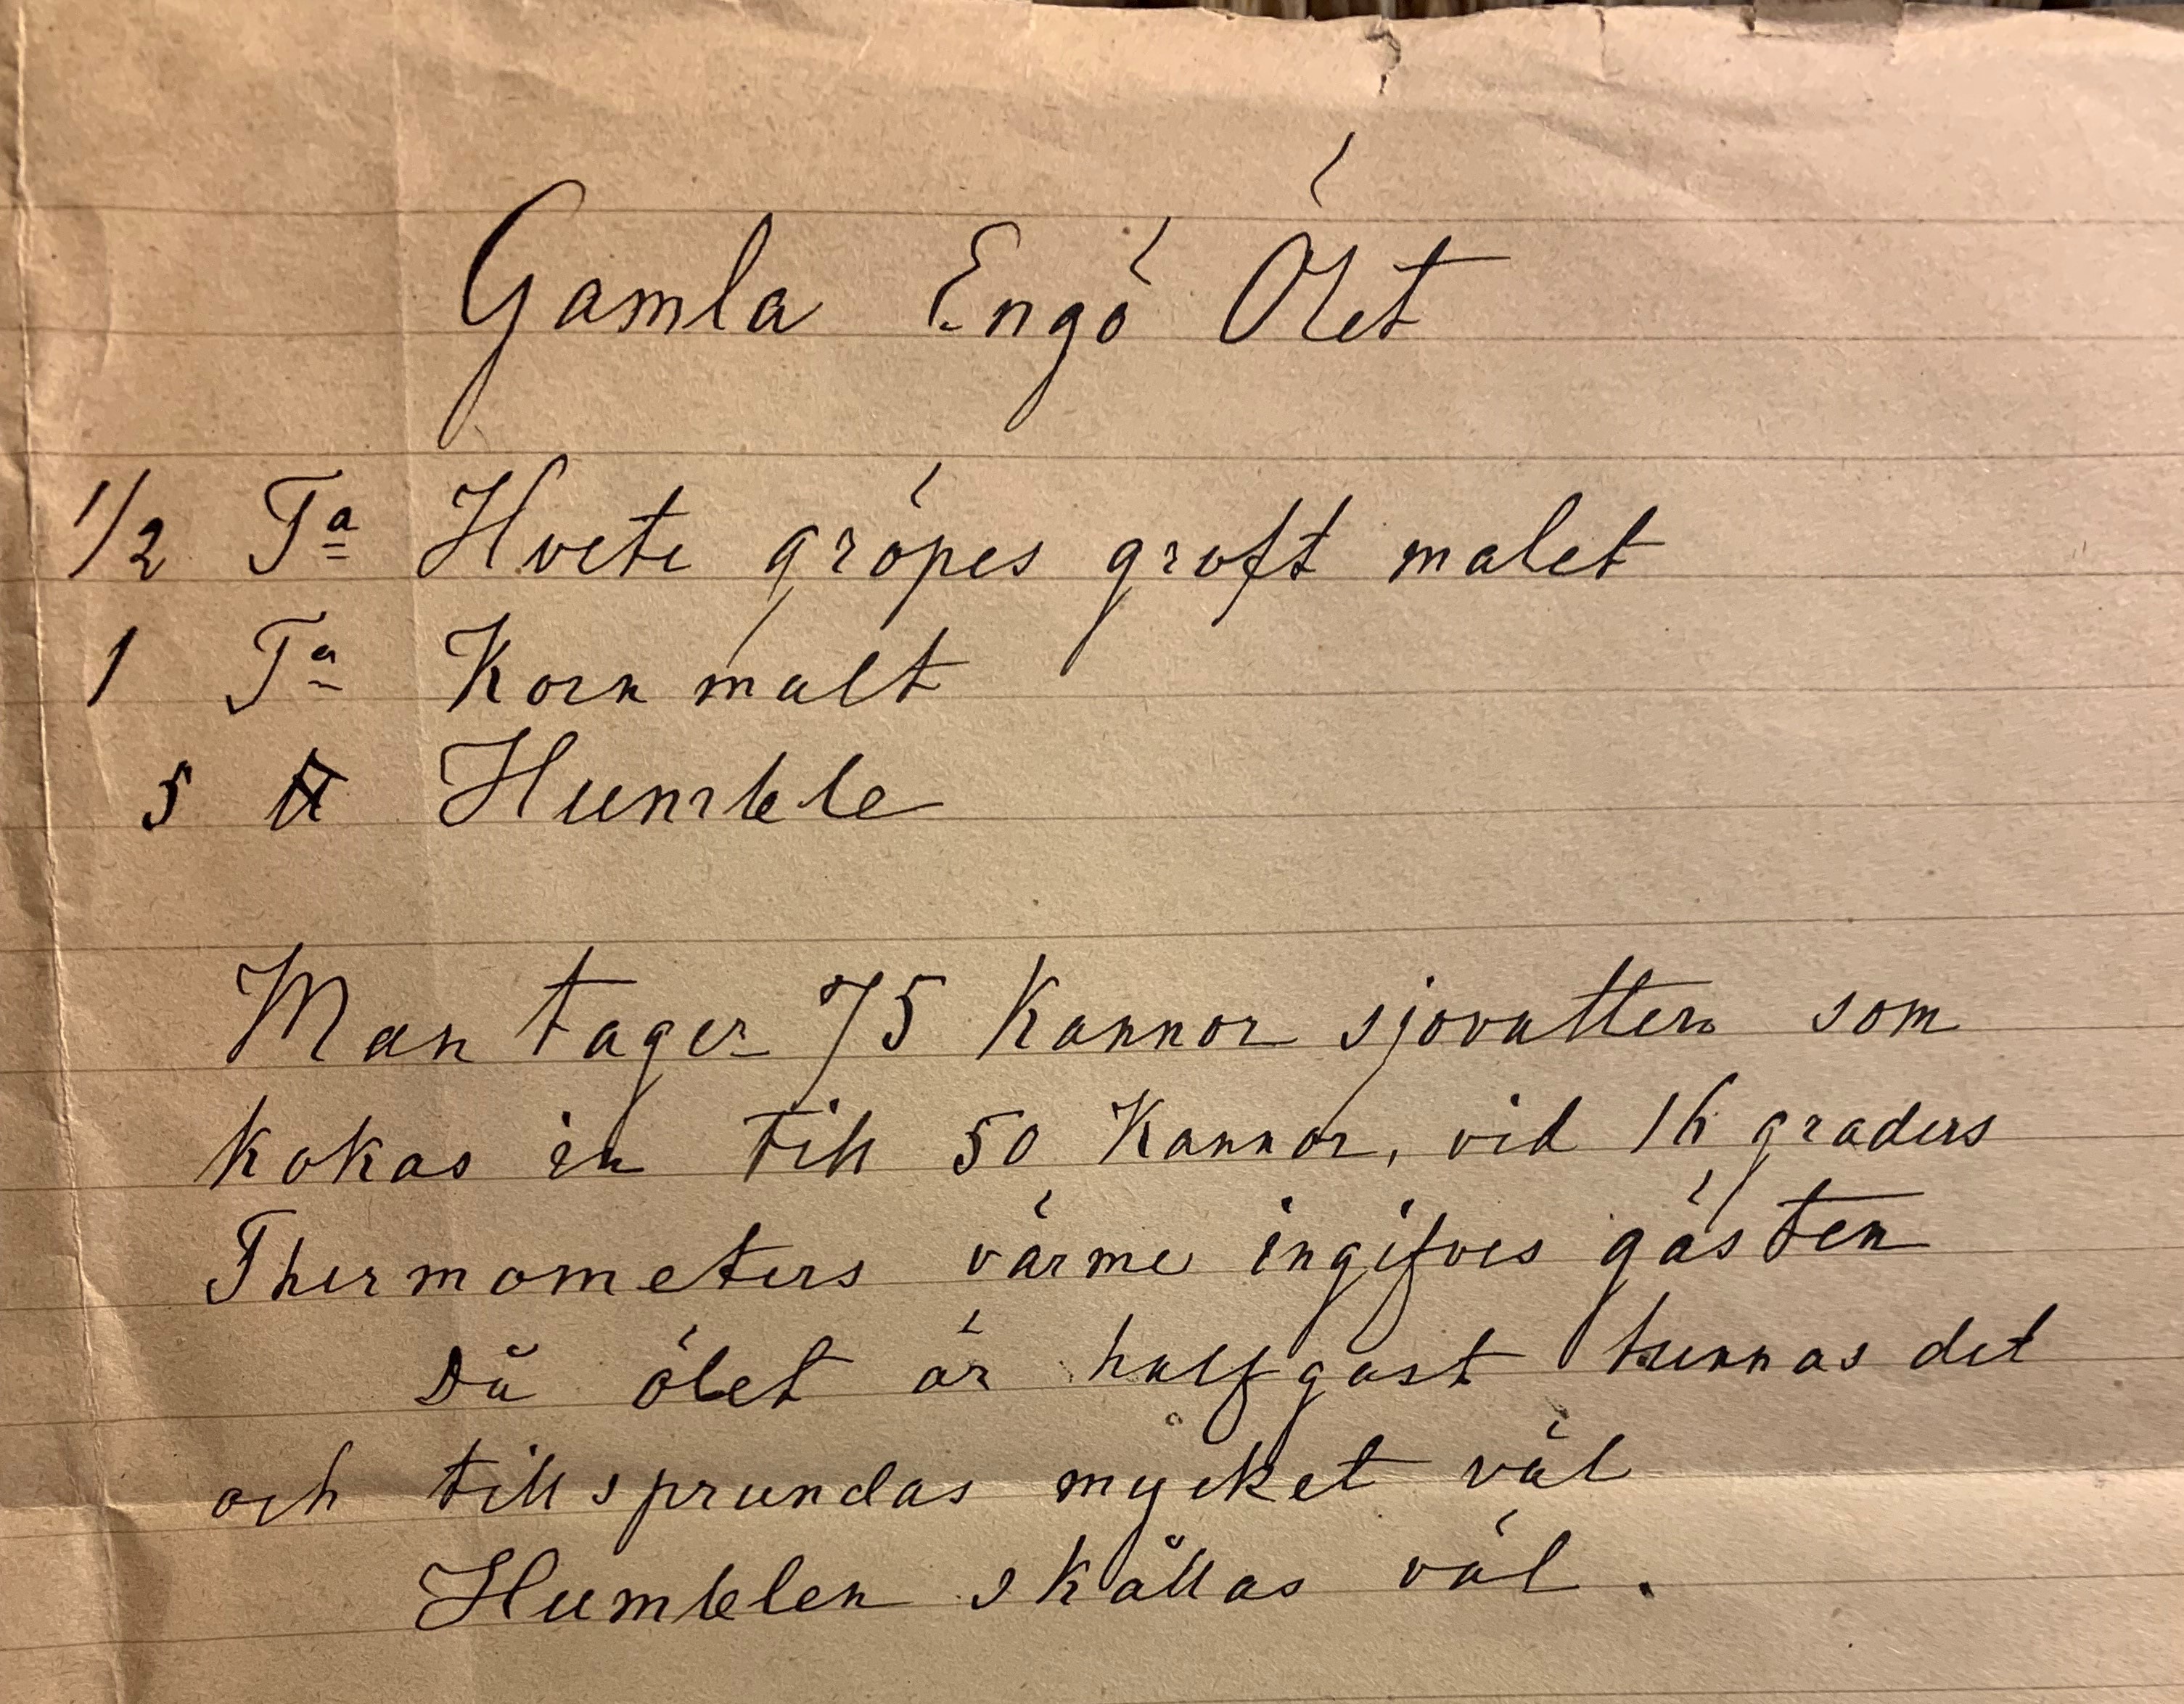 Gamla Engö Ölet
1/2 Ta Hvete gröpes groft malet
1 Ta Korn malt
5 ℔ Humble
Man tager 75 Kannor sjovatten som
kokas in till 50 Kannor, vid 16 graders
Thermometers värme ingifves gästen
Då ölet är halfgäst tunnas det
och tillsprundas mycket väl
Humblen skållas väl.